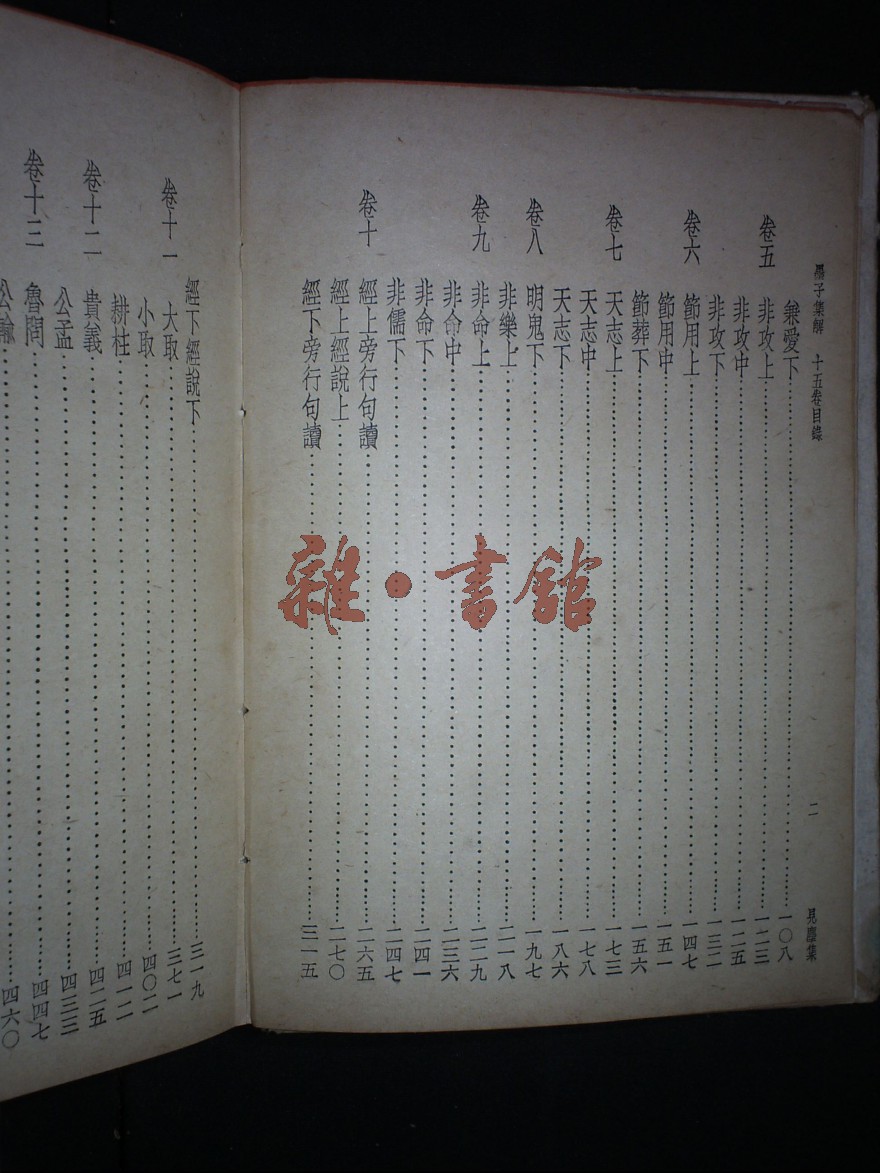 墨子集解 十五卷目錄 二 見塵集
兼愛下 一〇八
卷五 非攻上 一二三
非攻中 一二五
非攻下 一三二
卷六 節用上 一四七
節用中 一五一
節葬下 一五六
卷七 天志上 一七三
天志中 一七八
天志下 一八六
卷八 明鬼下 一九七
非樂上 二一八
卷九 非命上 二二九
非命中 二三六
非命下 二四一
非儒下 二四七
卷十 經上旁行句讀 二六五
經上經說上 二七〇
經下旁行句讀 三一五
經下經說下 三一九
卷十一 大取 三七一
小取 四〇二
耕柱 四一二
卷十二 貴義 四二五
公孟 四三三
卷十三 魯問 四四七
公輸 四六〇
雜·書館